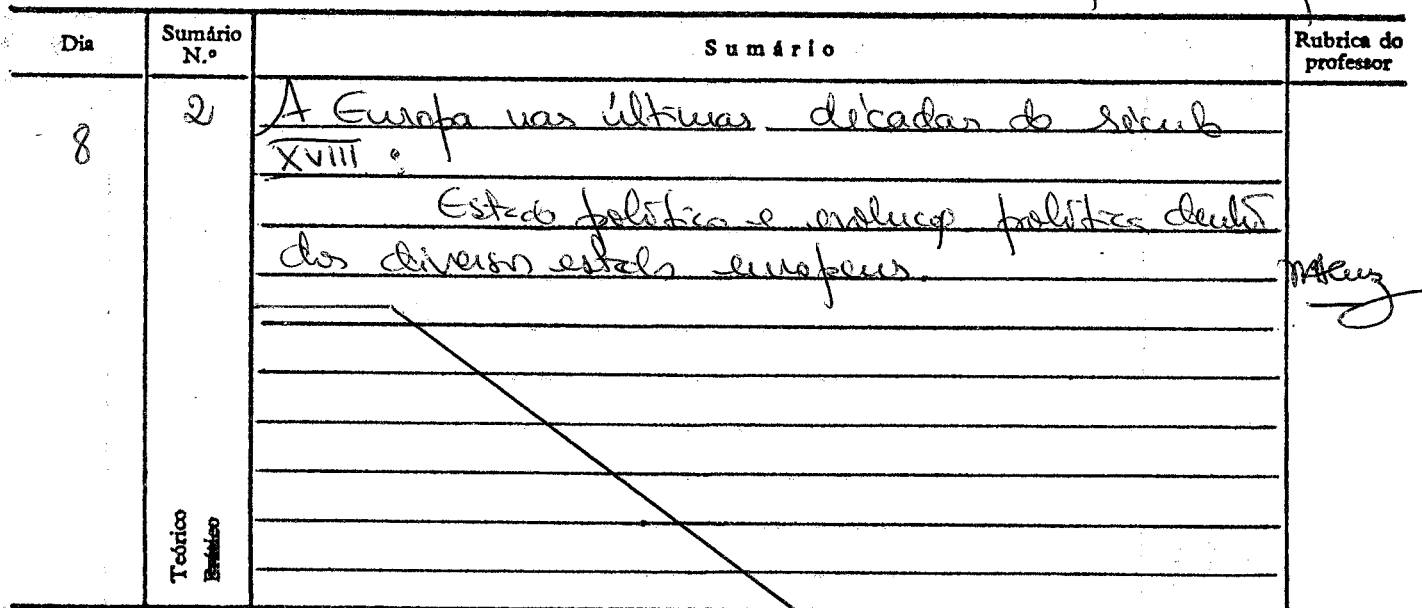 Dia
Sumário N.º
Sumário
Rubrica do professor
8
2
A Europa nas últimas décadas do século
XVIII :
Estado político e evolução política dentro
dos diversos estados europeus.
Teórico
Prático